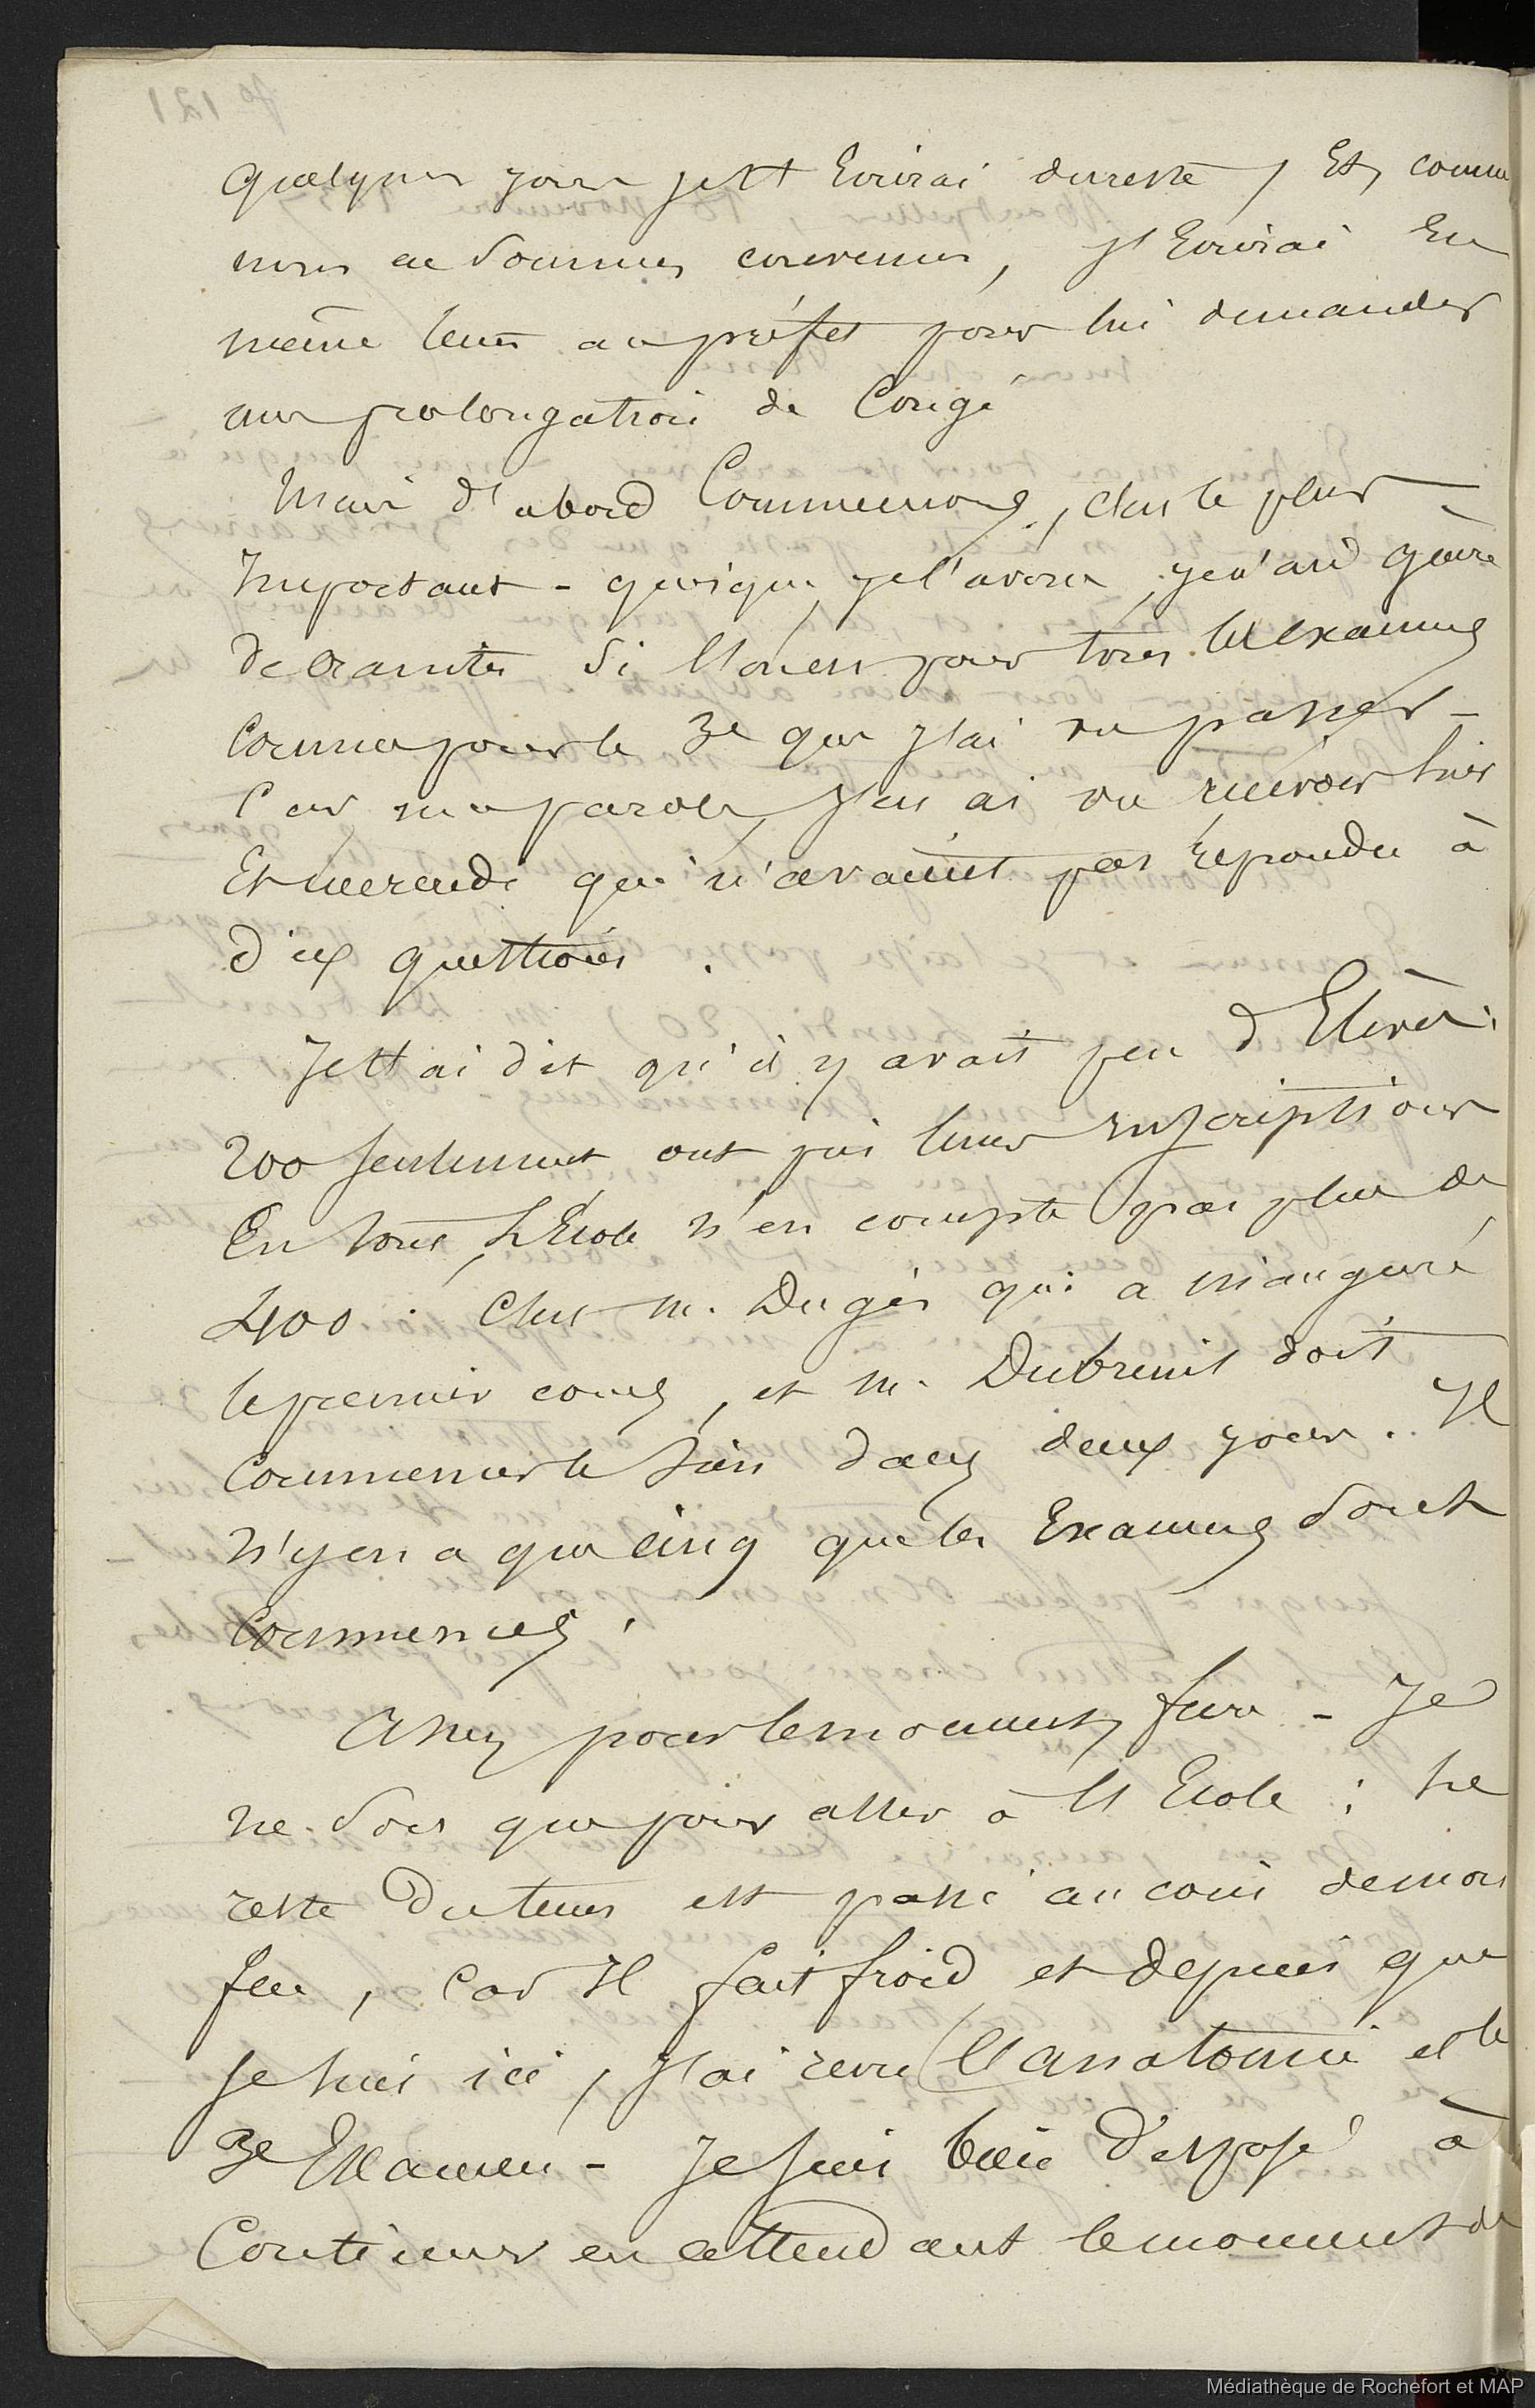 quelques jours je t'écrirai du reste, Et, comme
nous en sommes convenus, j'Ecrirai En
même tems au préfet pour lui demander
une prolongation de Congé
Mais d'abord Commençons, c'est le plus
Important - quoique, je l'avoue, je n'aie guère
de craintes si l'on est pour tous les examens
Comme pour le 3e que j'ai vu passer -
Car, ma parole, j'en ai vu recevoir hier
Et mercredi qui n'avaient pas répondu à
dix questions.
Je t'ai dit qu'il y avait peu d'Elèves.
200 seulement ont pris leurs Inscriptions
En tout, L'Ecole n'en compte pas plus de
400. C'est M. Dugès qui a inauguré
le premier cours, et M. Dubreuil doit
Commencer le sien dans deux jours. Il
n'y en a que cinq que les Examens sont
Commencés.
Assez pour le moment, frère - Je
ne sors que pour aller à l'Ecole : le
reste du tems est passé au coin de mon
feu, Car Il fait froid, et depuis que
je suis ici, j'ai revu l'anatomie et le
3e Examen - Je suis bien disposé à
Continuer en attendant le moment de
Médiathèque de Rochefort et MAP